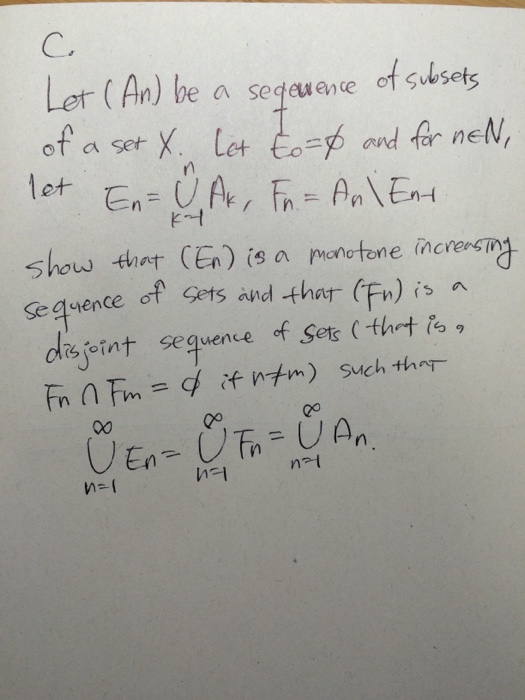 C.
Let (An) be a seqeuence of subsets
of a set X. Let E₀=∅ and for n∈N,
let Eₙ = ⋃ₖ₌₁ⁿ Aₖ, Fₙ = Aₙ\Eₙ₋₁
show that (Eₙ) is a monotone increasing
sequence of sets and that (Fₙ) is a
disjoint sequence of sets (that is,
Fₙ ∩ Fₘ = ∅ if n≠m) such that
⋃ₙ₌₁^∞ Eₙ = ⋃ₙ₌₁^∞ Fₙ = ⋃ₙ₌₁^∞ Aₙ.